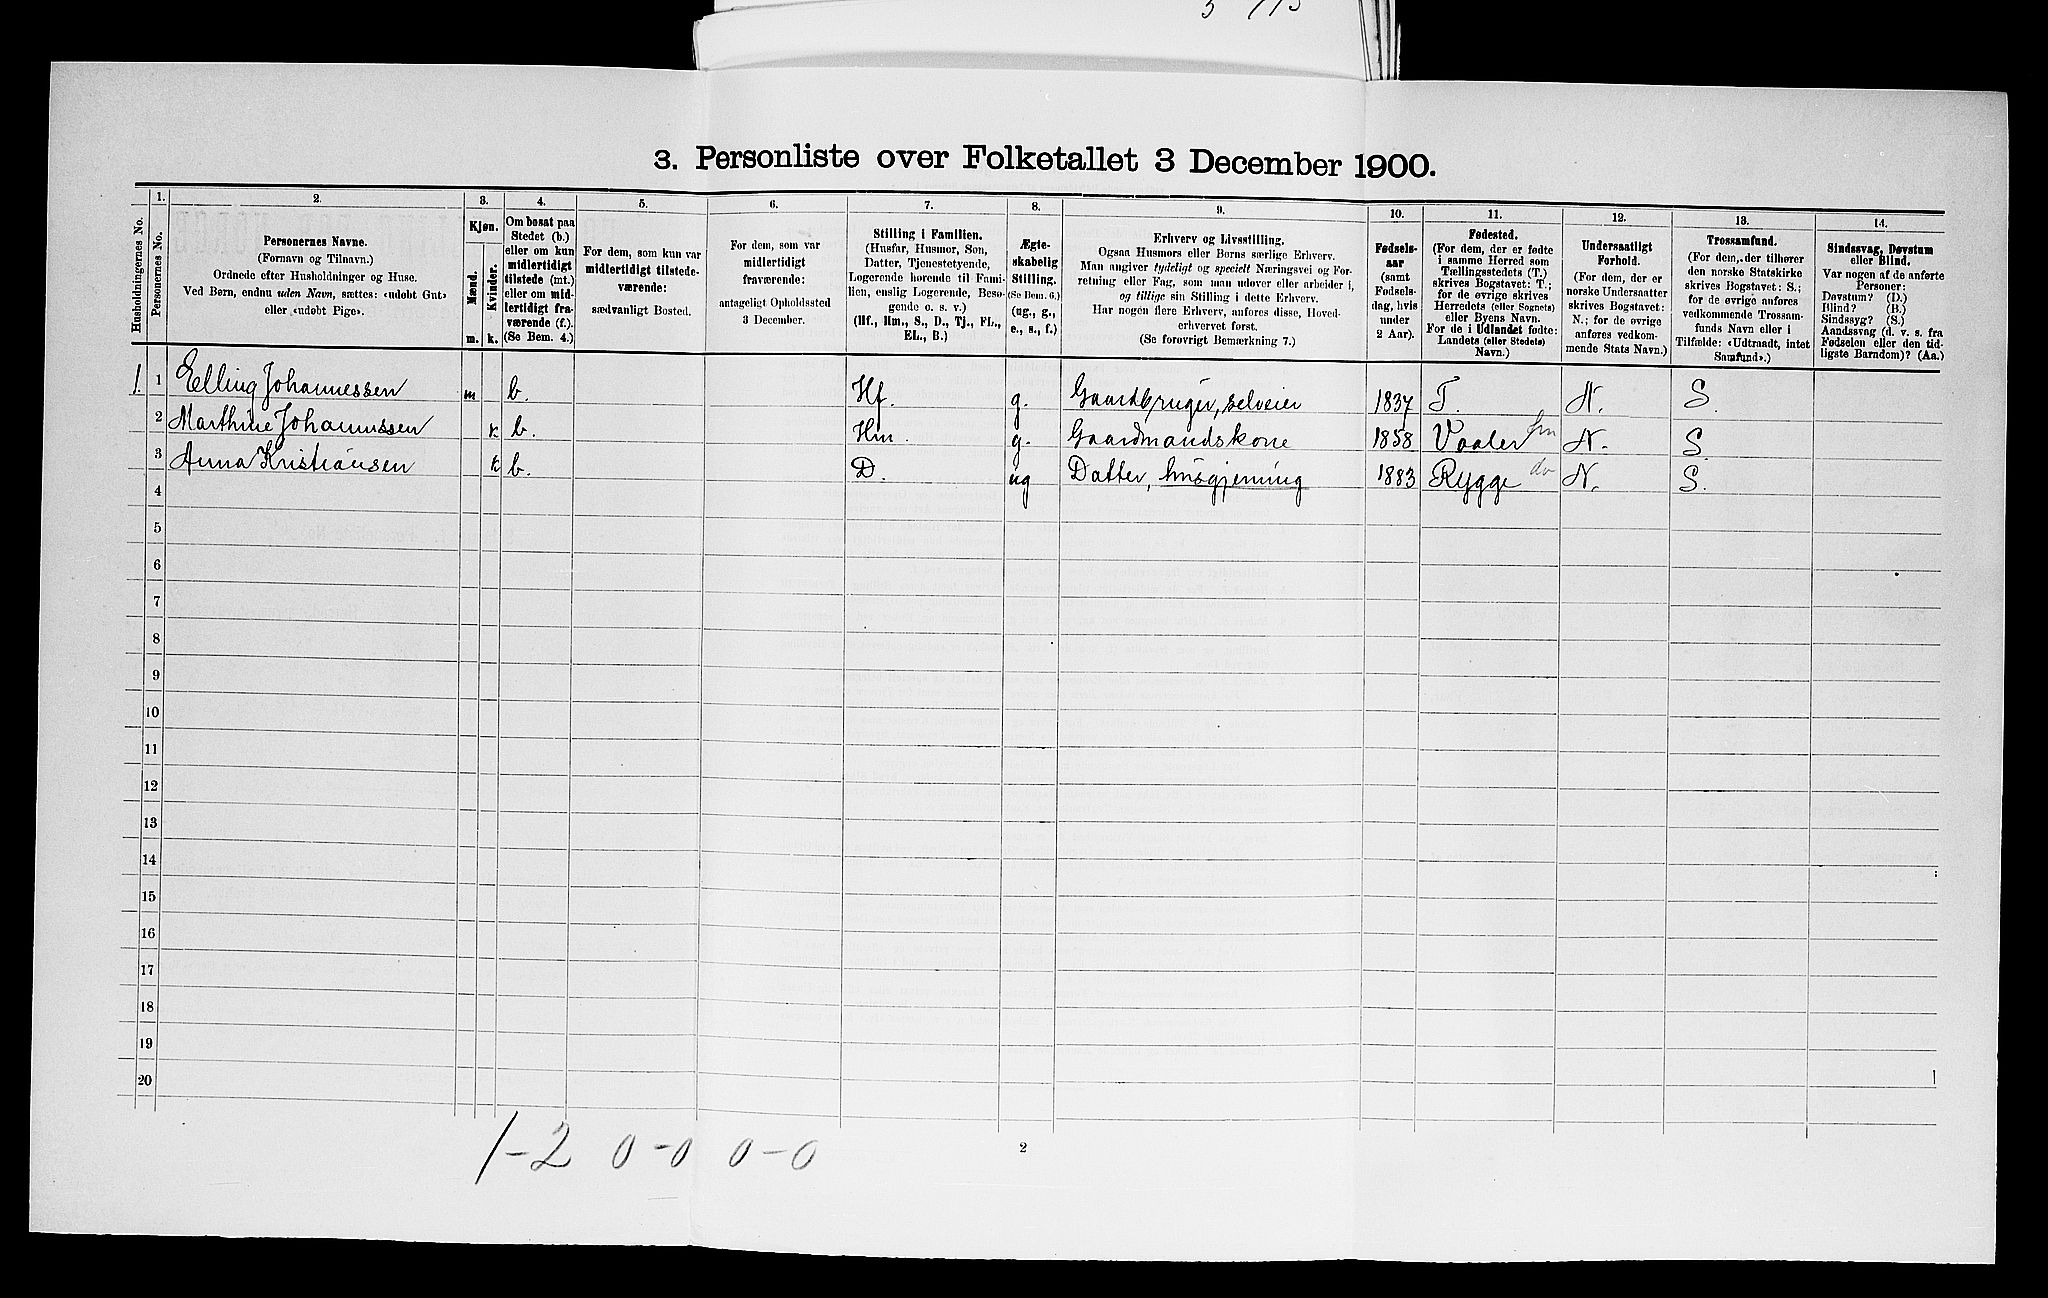 3. Personliste over Folketallet 3 December 1900.
Husholdningernes No.
1.
Personernes No.
2.
Personernes Navne.
(Fornavn og Tilnavn.)
Ordnede efter Husholdninger og Huse.
Ved Børn, endnu uden Navn, sættes: «udøbt Gut»
eller «udøbt Pige».
3.
Kjøn.
Mænd.
Kvinder.
m. k.
4.
Om bosat paa
Stedet (b.)
eller om kun
midlertidigt
tilstede (mt.)
eller om mid-
lertidigt fra-
værende (f.).
(Se Bem. 4.)
5.
For dem, som kun var
midlertidigt tilstede-
værende:
sædvanligt Bosted.
6.
For dem, som var
midlertidigt
fraværende:
antageligt Opholdssted
3 December.
7.
Stilling i Familien.
(Husfar, Husmor, Søn,
Datter, Tjenestetyende,
Logerende hørende til Fami-
lien, enslig Logerende, Besø-
gende o. s. v.)
(Hf., Hm., S., D., Tj., FL.,
EL., B.)
8.
Ægte-
skabelig
Stilling.
(Se Bem. 6.)
(ug., g.,
e., s., f.)
9.
Erhverv og Livsstilling.
Ogsaa Husmors eller Børns særlige Erhverv.
Man angiver tydeligt og specielt Næringsvei og For-
retning eller Fag, som man udøver eller arbeider i,
og tillige sin Stilling i dette Erhverv.
Har nogen flere Erhverv, anføres disse, Hoved-
erhvervet først.
(Se forøvrigt Bemærkning 7.)
10.
Fødsels-
aar
(samt
Fødsels-
dag, hvis
under
2 Aar).
11.
Fødested.
(For dem, der er fødte
i samme Herred som
Tællingsstedets (T.)
skrives Bogstavet: T.;
for de øvrige skrives
Herredets (eller Sognets)
eller Byens Navn.
For de i Udlandet fødte:
Landets (eller Stedets)
Navn.)
12.
Undersaatligt
Forhold.
(For dem, der er
norske Undersaatter
skrives Bogstavet:
N.; for de øvrige
anføres vedkom-
mende Stats Navn.)
13.
Trossamfund.
(For dem, der tilhører
den norske Statskirke
skrives Bogstavet: S.;
for de øvrige anføres
vedkommende Trossam-
funds Navn eller i
Tilfælde: «Udtraadt, intet
Samfund».)
14.
Sindssvag, Døvstum
eller Blind.
Var nogen af de anførte
Personer:
Døvstum? (D.)
Blind? (B.)
Sindssyg? (S.)
Aandssvag (d. v. s. fra
Fødselen eller den tid-
ligste Barndom)? (Aa.)
1 1 Elling Johannessen m b. Hf. g. Gaardbruger, selveier 1837 T. N. S.
2 Marthine Johannssen k b. Hm. g. Gaardmandskone 1858 Vaaler fm N. S.
3 Anna Kristiansen k b. D. ug Datter, husgjerning 1883 Rygge do N. S.
4
5
6
7
8
9
10
11
12
13
14
15
16
17
18
19
20
1-2 0-0 0-0
2